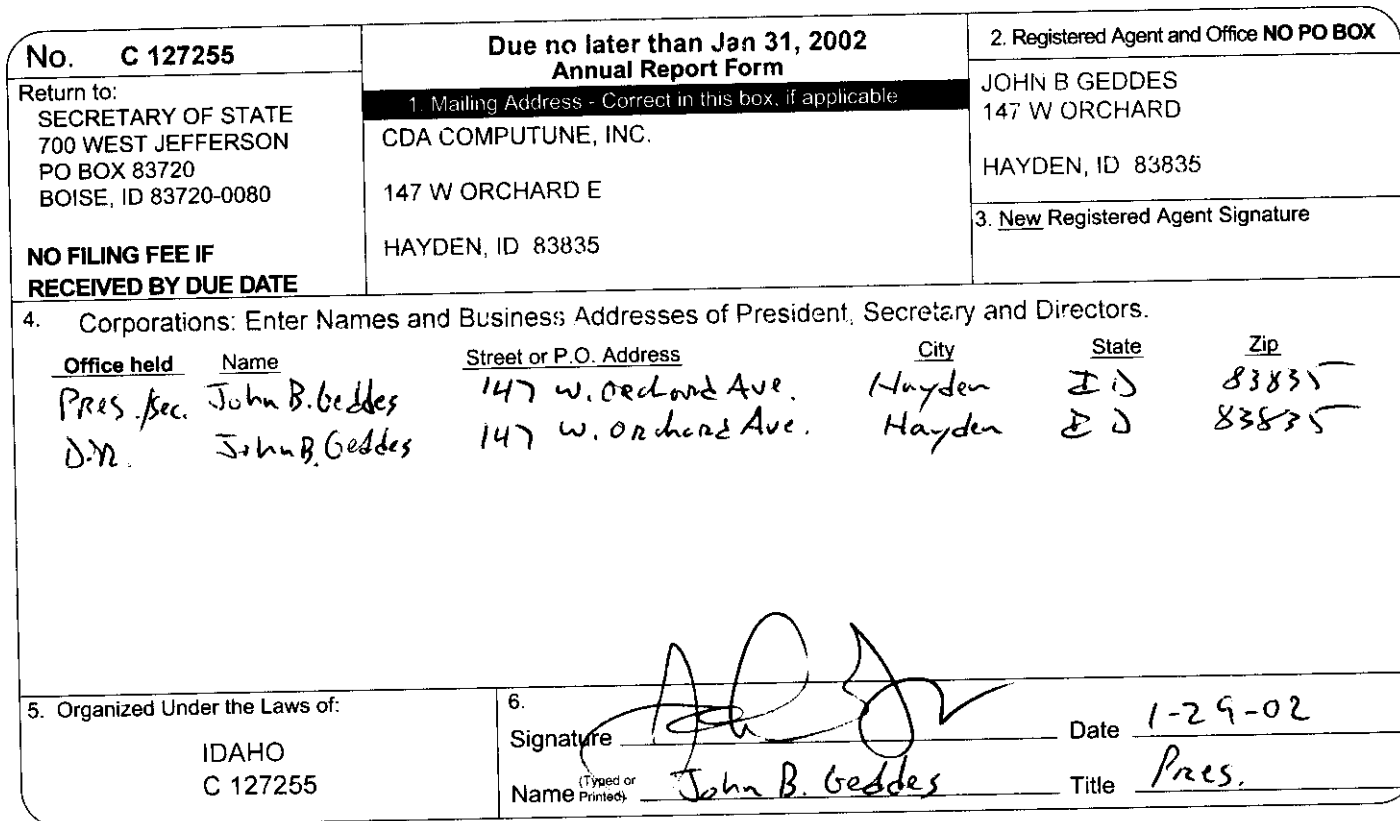 No. C 127255
Return to:
SECRETARY OF STATE
700 WEST JEFFERSON
PO BOX 83720
BOISE, ID 83720-0080
NO FILING FEE IF
RECEIVED BY DUE DATE
Due no later than Jan 31, 2002
Annual Report Form
1. Mailing Address - Correct in this box, if applicable
CDA COMPUTUNE, INC.
147 W ORCHARD E
HAYDEN, ID 83835
2. Registered Agent and Office NO PO BOX
JOHN B GEDDES
147 W ORCHARD
HAYDEN, ID 83835
3. New Registered Agent Signature
4. Corporations: Enter Names and Business Addresses of President, Secretary and Directors.
Office held Name Street or P.O. Address City State Zip
Pres./Sec. John B. Geddes 147 W. Orchard Ave. Hayden ID 83835
Dir. John B. Geddes 147 W. Orchard Ave. Hayden ID 83835
5. Organized Under the Laws of:
IDAHO
C 127255
6.
Signature Date 1-29-02
Name (Typed or Printed) John B. Geddes Title Pres.